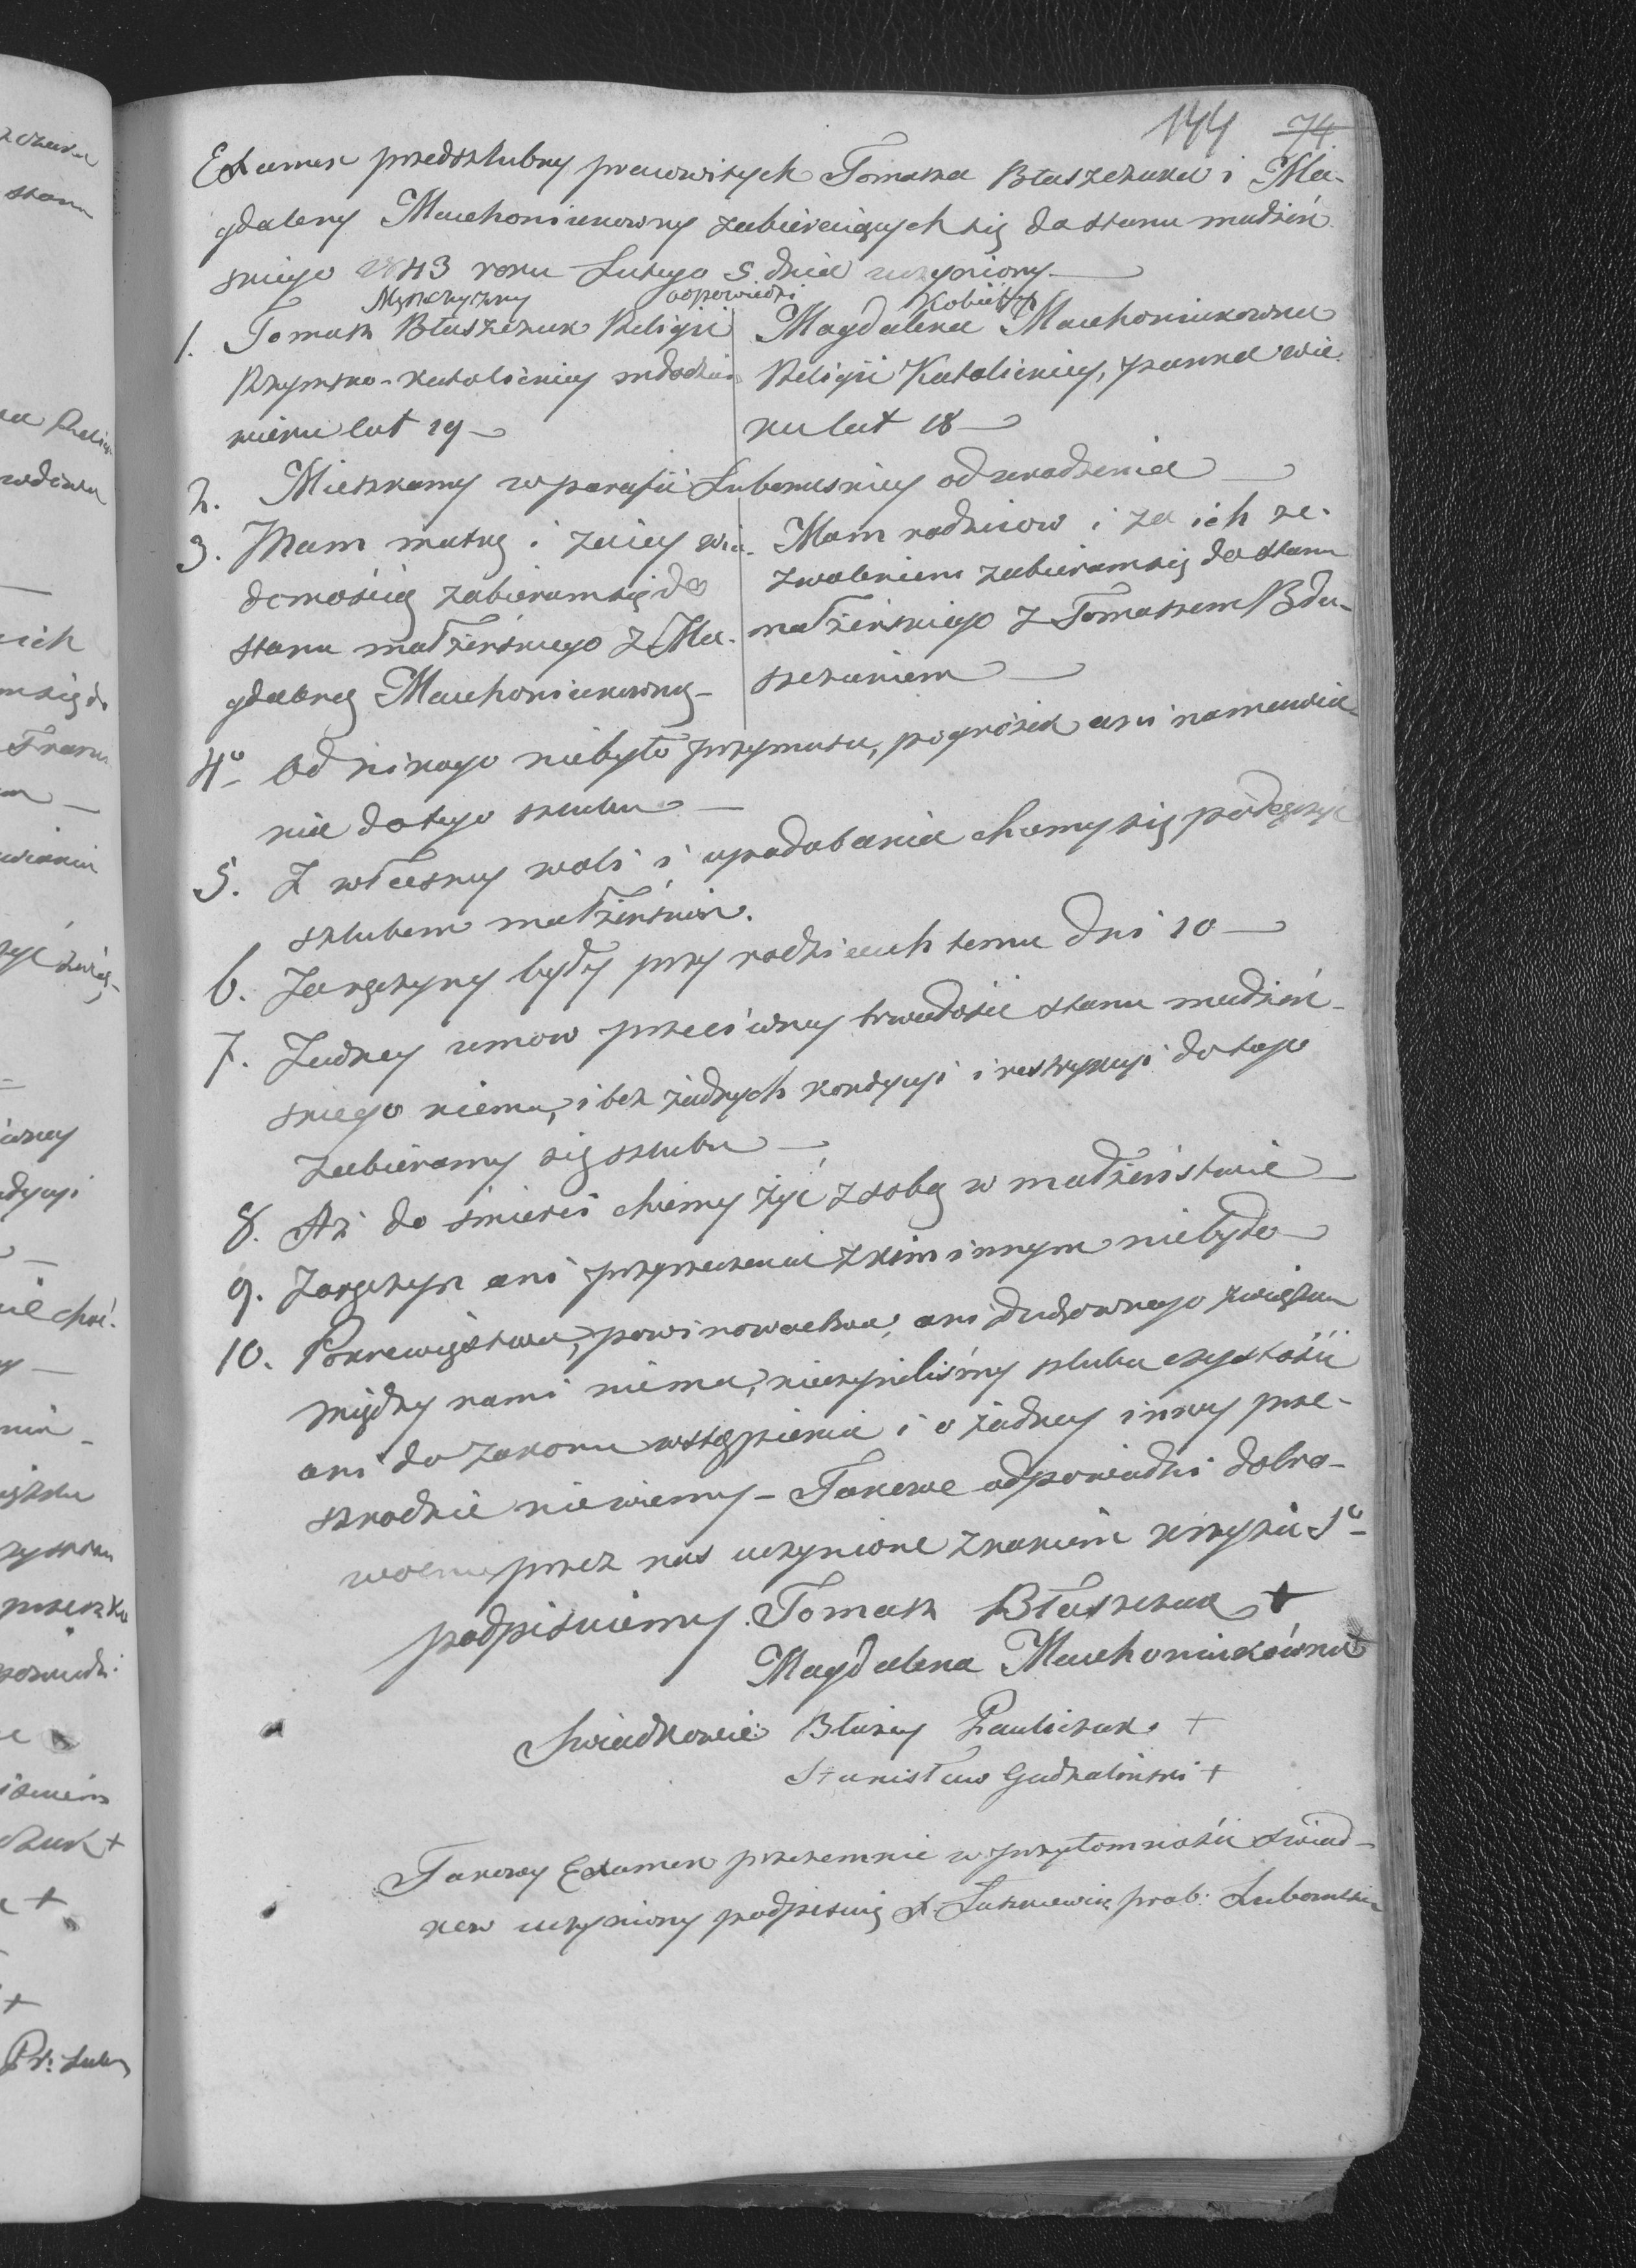 144 74
Examen przedszlubny pracowitych Tomasza Błaszczuka i Ma-
gdaleny Machoniukowny zabieraiących się do stanu małżeń
skiego 1843 roku Lutego 5 dnia uczyniony
Męszczyzny odpowiedzi Kobiéty
1. Tomasz Błaszczuk Religii
Rzymsko-Katolickiey młodzian
wieku lat 19
Magdalena Machoniukowna
Religii Katolickiey, panna wie-
ku lat 18
2. Mieszkamy w parafii Lubomskiey od urodzenia
3. Mam matkę i za iey wia-
domością zabieram się do
stanu małżeńskiego z Ma-
gdaleną Machoniukowną
Mam rodzicow i za ich ze-
zwoleniem zabieram się do stanu
małżeńskiego z Tomaszem Bła-
szczukiem
4o Od nikogo niebyło przymusu, pogrózek ani namawia-
nia do tego szlubu
5. Z własney woli i upodobania chcemy się połączyć
szlubem małżeńskim.
6. Zaręczyny były przy rodzicach temu dni 10
7. Żadney umow przeciwney trwałości stanu małżeń-
skiego niema, i bez żadnych kondycyi i restrykcyi do tego
zabieramy się szlubu
8. Aż do śmierci chcemy żyć z sobą w małżeństwie
9. Zaręczyn ani przyrzeczenia z kim innym niebyło
10. Pokrewięstwa, powinowactwa, ani duchownego związku
między nami niema, nieczyniliśmy szlubu czystości
ani do zakonu wstąpienia i o żadney inney prze-
szkodzie niewiemy - Takowe odpowiedzi dobro-
wolnie przez nas uczynione znakiem krzyża So
podpisuiemy. Tomasz Błaszczuk +
Magdalena Machoniukówna +
Swiadkowie Błażey Pauliczuk +
Stanisław Gudzaliński +
Takowy Examen przezemnie w przytomności świad-
kow uczyniony podpisuię prob: Lubomski